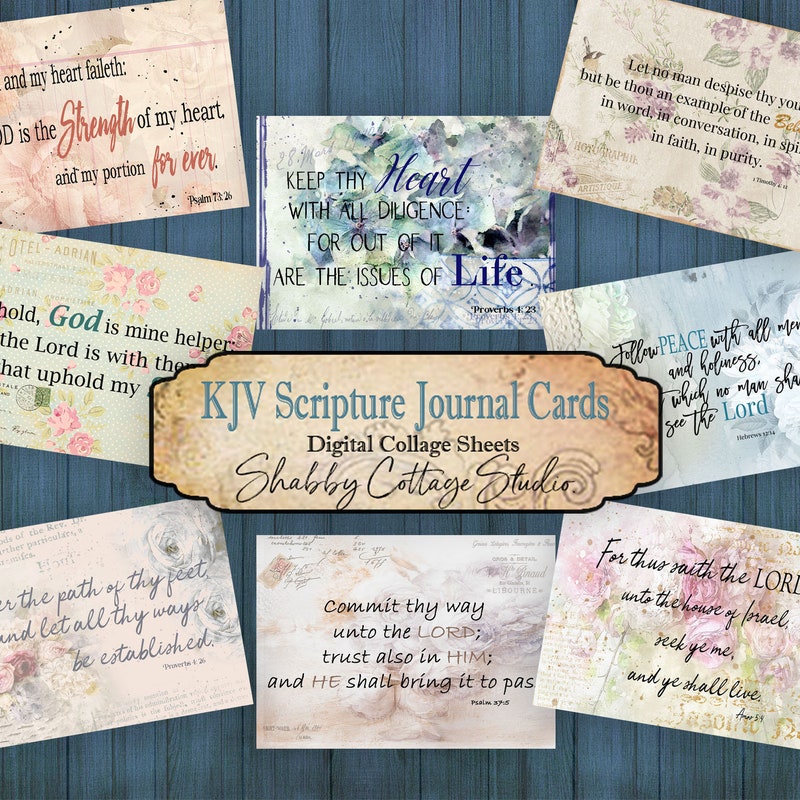 and my heart faileth:
OD is the Strength of my heart,
and my portion for ever.
Psalm 73:26
28 Mart
KEEP THY Heart
WITH ALL DILIGENCE:
FOR OUT OF IT
ARE THE ISSUES OF Life
Proverbs 4: 23
Proverbs 4: 23
Let no man despise thy you
but be thou an example of the Bel
in word, in conversation, in spi
in faith, in purity.
1 Timothy 4: 12
ARTISTIQUE
OTEL-ADRIAN
hold, God is mine helper:
the Lord is with the
that uphold my
Follow PEACE with all men
and holiness,
which no man sha
see the Lord
Hebrews 12:14
KJV Scripture Journal Cards
Digital Collage Sheets
Shabby Cottage Studio.
er the path of thy feet,
and let all thy ways
be established.
Proverbs 4: 26
Commit thy way
unto the LORD;
trust also in HIM;
and HE shall bring it to pas
Psalm 37:5
LIBOURNE
For thus saith the LORD
unto the house of Israel,
seek ye me,
and ye shall live.
Amos 5:4